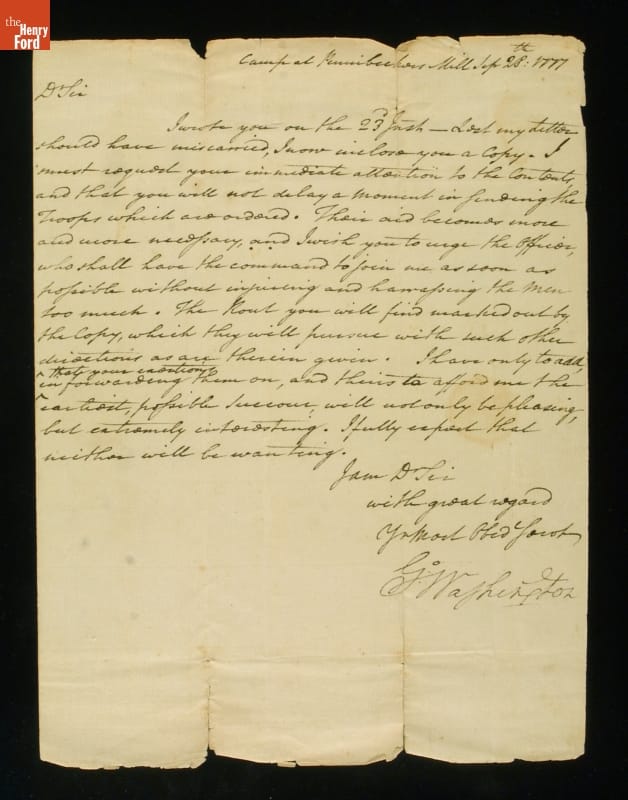 the
Henry
Ford
Camp at Pennibeckers Mill Sep 28th: 1777
Dr Sir
I wrote you on the 23d Inst — Lest my Letter
should have miscarried, I now inclose you a Copy. I
must request your immediate attention to the Contents,
and that you will not delay a moment in sending the
Troops which are ordered. Their aid becomes more
and more necessary, and I wish you to urge the Officer,
who shall have the command to join me as soon as
possible without injuring and harrassing the Men
too much. The Rout you will find marked out by
the Copy, which they will pursue with such other
directions as are therein given. I have only to add,
that your exertions
in forwarding them on, and theirs to afford me the
earliest, possible succour, will not only be pleasing,
but extremely interesting. I fully expect that
neither will be wanting.
I am Dr Sir
with great regard
Yr Most Obed Servt
Go: Washington